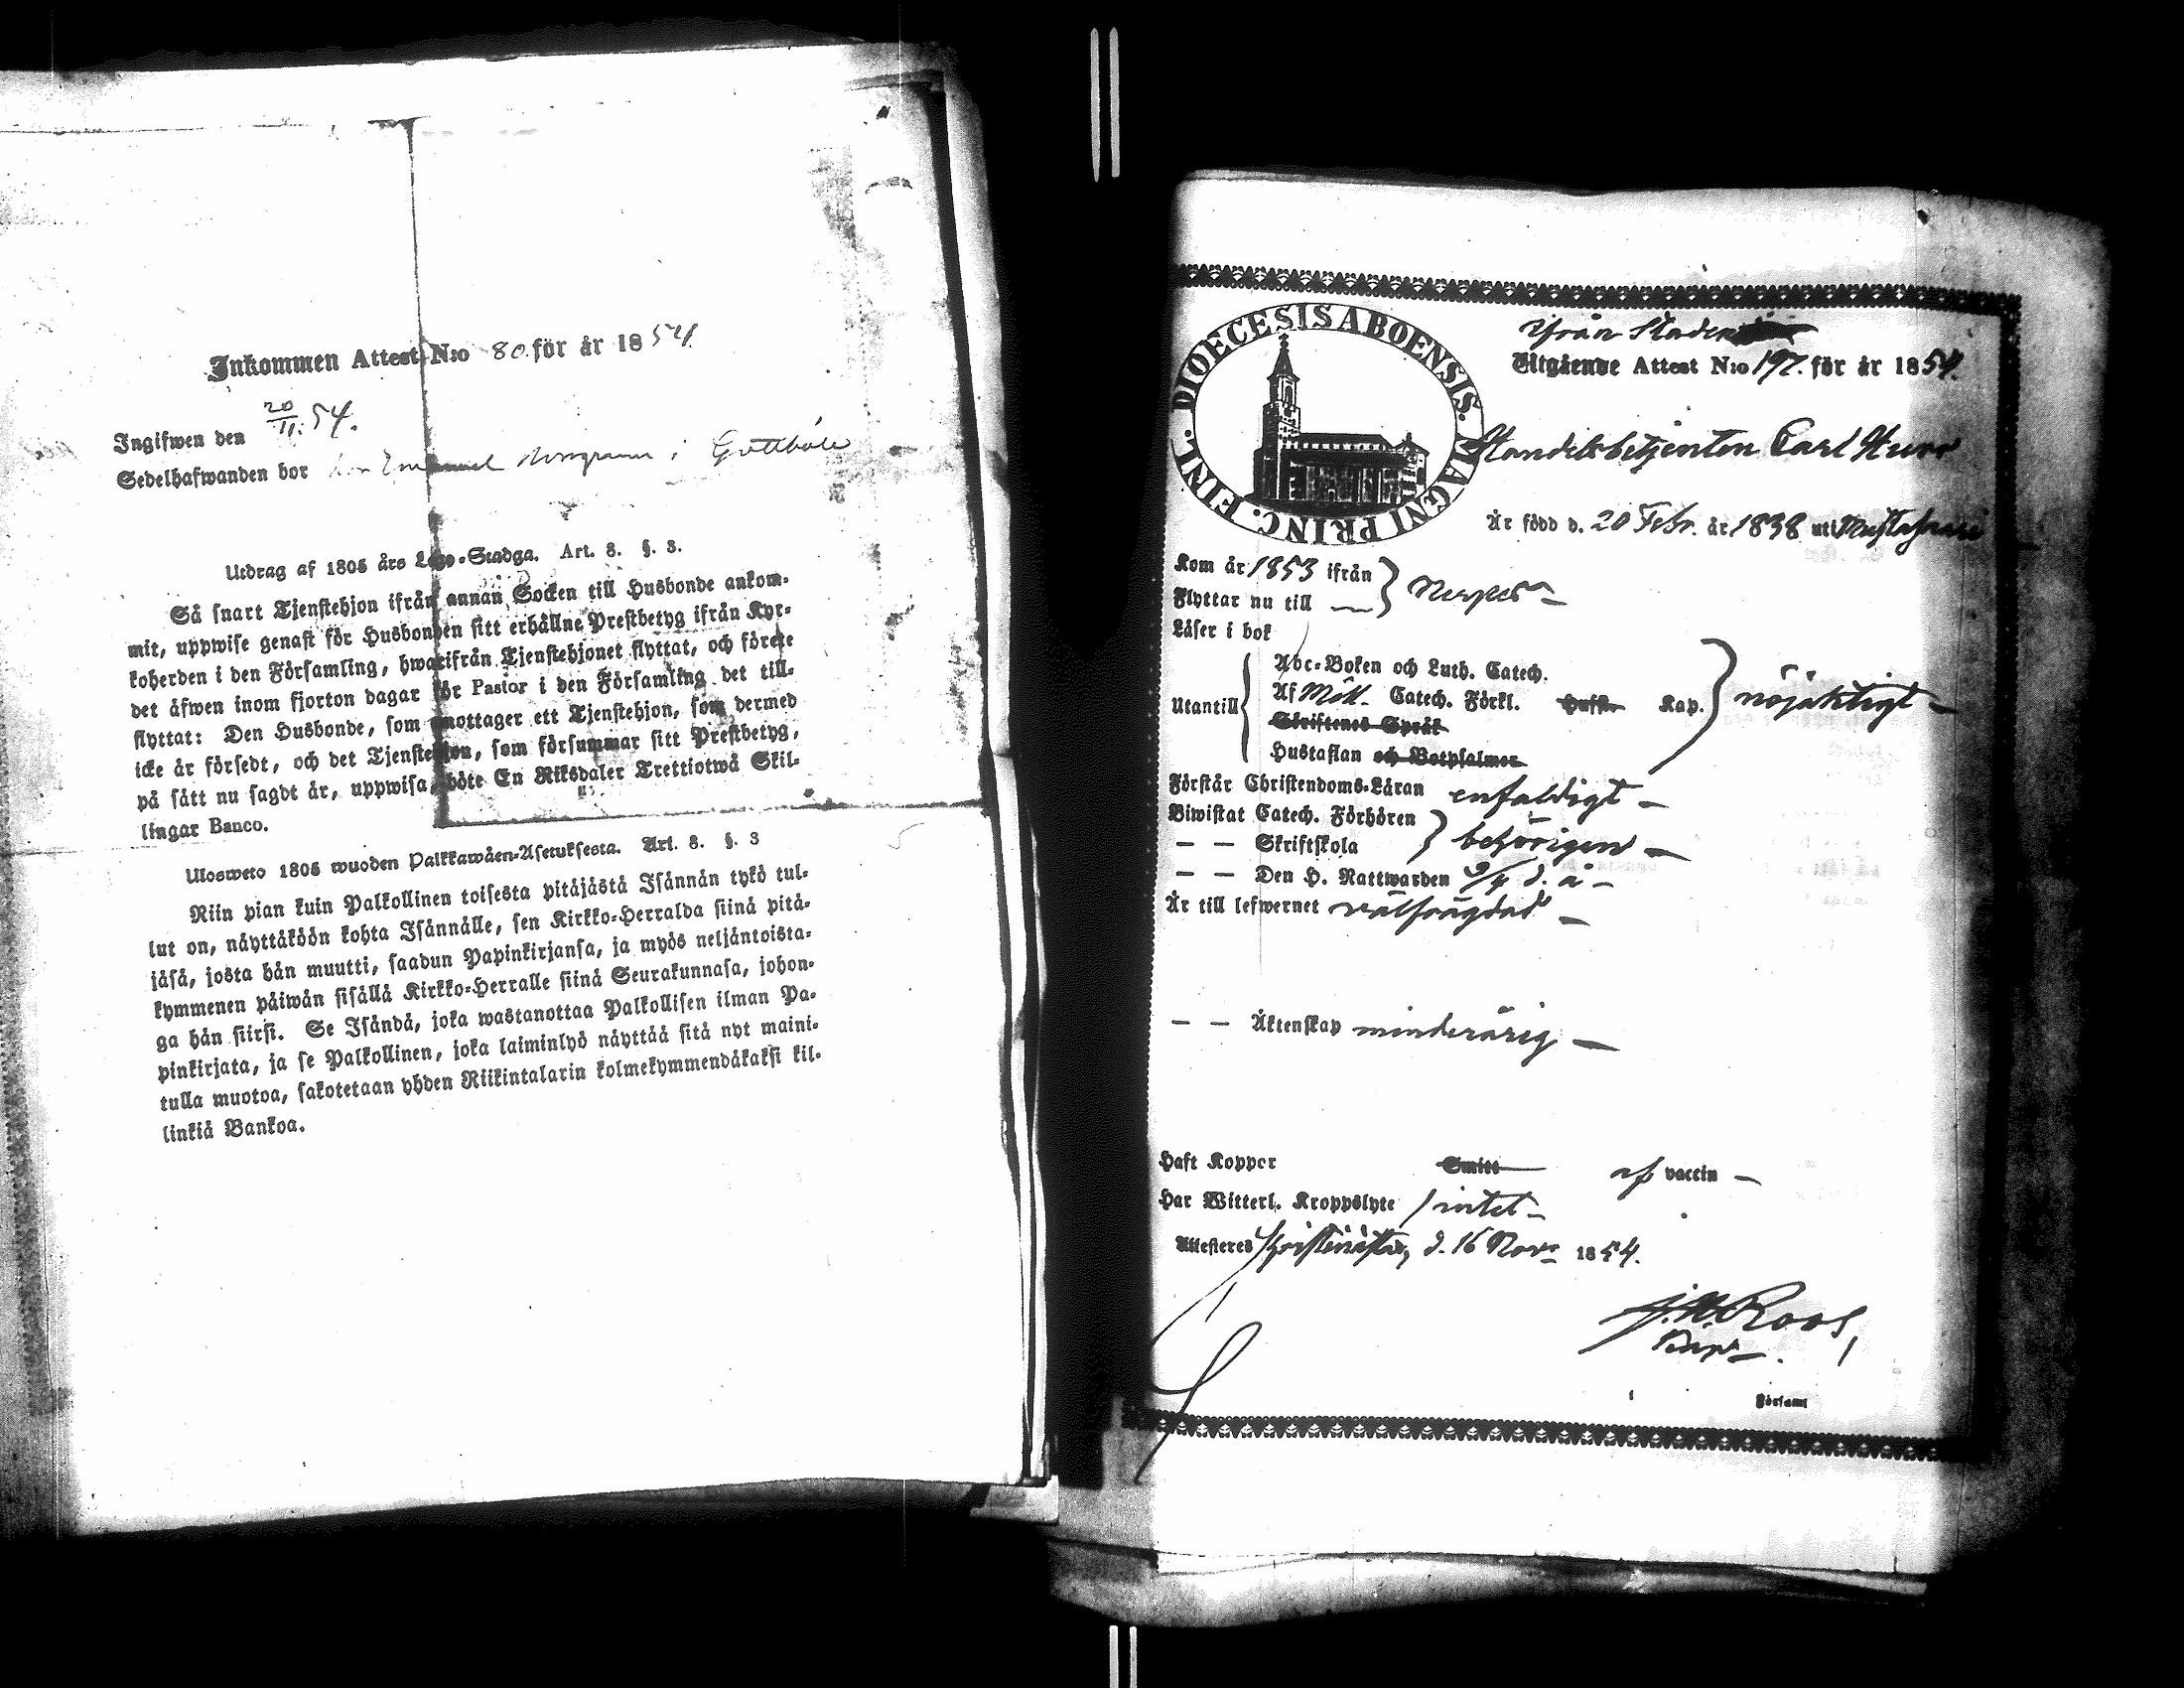 Inkommen Attest N:o 80. för år 1854.
Ingifwen den 20/11. 54.
Sedelhafwanden bor hos Emanuel i Gottböle
Utdrag af 1805 års Lego-Stadga. Art. 8. §. 3.
Så snart Tjenstehjon ifrån annan Socken till Husbonde ankom-
mit, uppwise genast för Husbonden sitt erhållne Prestbetyg ifrån Kyr-
koherden i den Församling, hwarifrån Tjenstehjonet flyttat, och förete
det äfwen inom fjorton dagar för Pastor i den Församling det till-
flyttat: Den Husbonde, som emottager ett Tjenstehjon, som dermed
icke är försedt, och det Tjenstehjon, som försummar sitt Prestbetyg,
på sätt nu sagdt är, uppwisa, böte En Riksdaler Trettiotwå Skil-
lingar Banco.
Ulosweto 1805 wuoden Palkkawäen-Asetuksesta. Art. 8. §. 3
Niin pian kuin Palkollinen toisesta pitäjästä Isännän tykö tul-
lut on, näyttäköön kohta Isännälle, sen Kirkko-Herralda siinä pitä-
jäsä, josta hän muutti, saadun Papinkirjansa, ja myös neljäntoista-
kymmenen päiwän sisällä Kirkko-Herralle siinä Seurakunnasa, johon-
ga hän siirsi. Se Isändä, joka wastanottaa Palkollisen ilman Pa-
pinkirjata, ja se Palkollinen, joka laiminlyö näyttää sitä nyt maini-
tulla muotoa, sakotetaan yhden Riikintalarin kolmekymmendäkaksi kil-
linkiä Bankoa.
DIOECESIS ABOENSIS. MAGNI PRINC. FINL.
ifrån Staden
Utgående Attest N:o 197. för år 1854.
Handelsbetjenten Carl
Är född d. 20 Febr. år 1838 uti
Kom år 1853 ifrån
Flyttar nu till — } Nerpes —
Läser i bok
Utantill { Abc-Boken och Luth. Catech.
Af Möll. Catech. Förkl. Hufst. Kap. } nöjaktigt —
Skriftenes Språk
Hustaflan och Botpsalmer
Förstår Christendoms-Läran enfaldigt —
Biwistat Catech. Förhören
— — Skriftskola } behörigen —
— — Den H. Nattwarden 9/4 d. å —
Är till lefwernet välfrägdad —
— — Äktenskap minderårig —
Haft Koppor Smitt af vaccin —
Har Witterl. Kroppslyte intet —
Attesteras Christinestad, d. 16 Novr 1854.
Roos,
i Församl